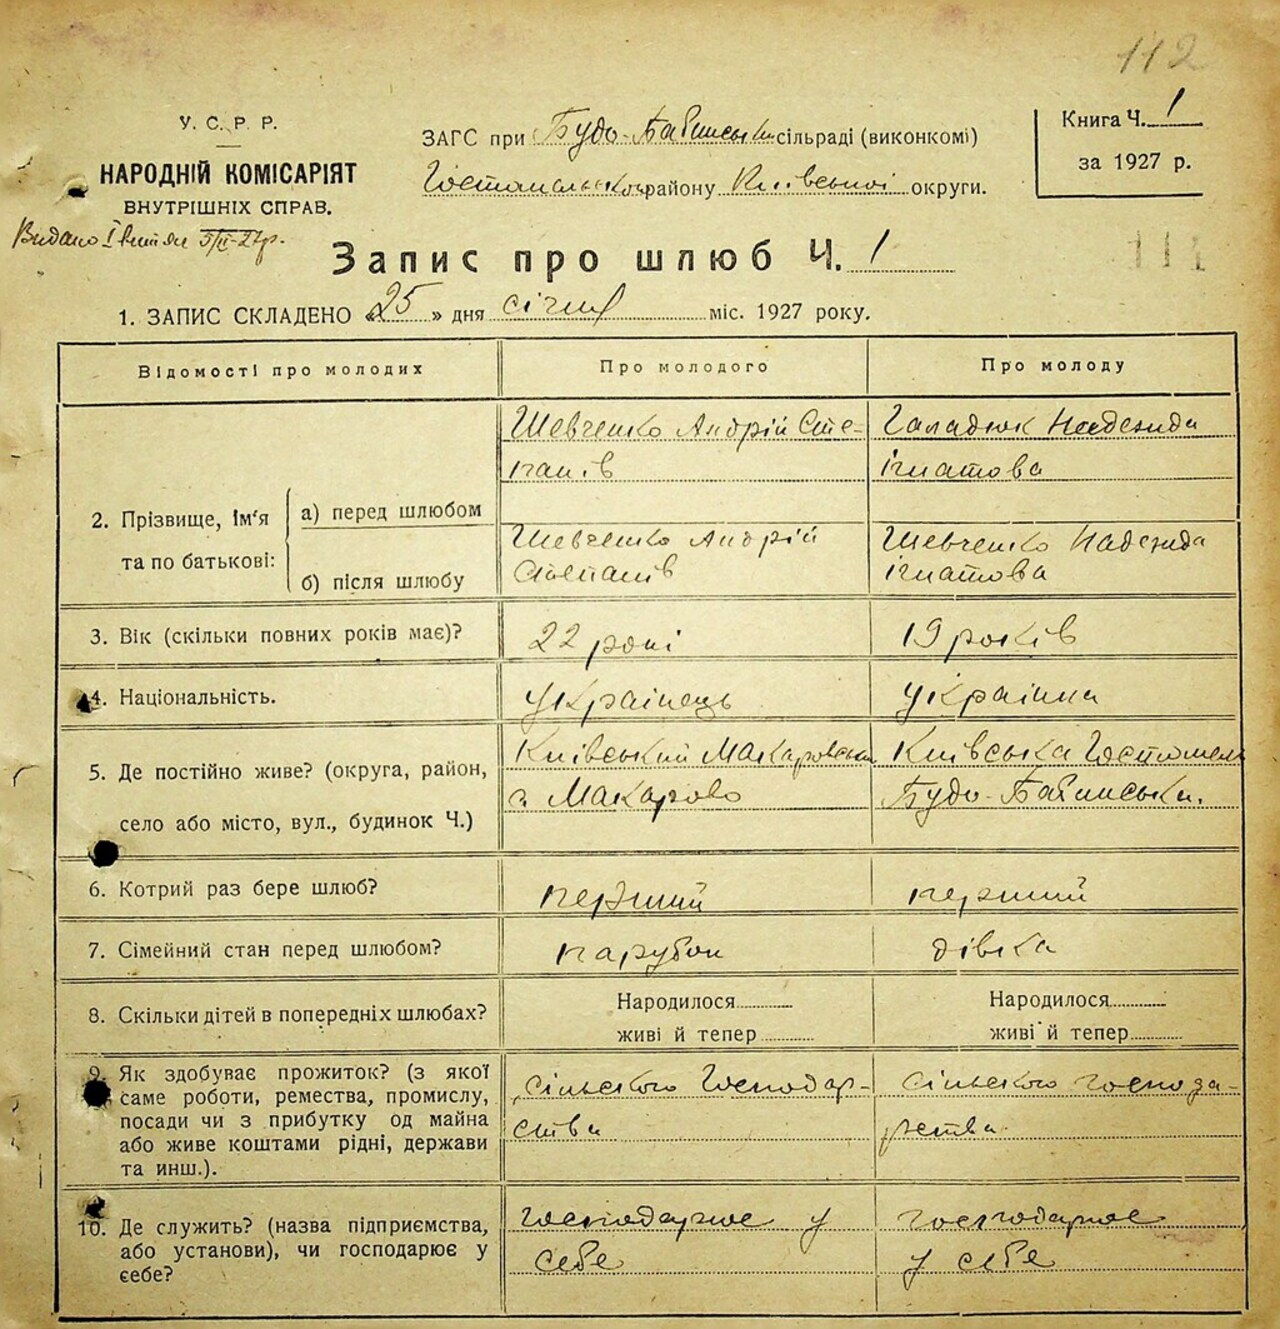 112
У. С. Р. Р.
НАРОДНІЙ КОМІСАРІЯТ
ВНУТРІШНІХ СПРАВ.
Видано 5/II-27р.
ЗАГС при Будо-Бабинській сільраді (виконкомі)
району Київської округи.
Книга Ч. 1
за 1927 р.
114
Запис про шлюб Ч. 1
1. ЗАПИС СКЛАДЕНО «25» дня січня міс. 1927 року.
Відомості про молодих
Про молодого
Про молоду
2. Прізвище, ім'я
та по батькові:
а) перед шлюбом
Шевченко Андрій Сте-
панів
Галадюк Надежда
ігнатова
б) після шлюбу
Шевченко Андрій
Степанів
Шевченко Надежда
ігнатова
3. Вік (скільки повних років має)?
22 роки
19 років
4. Національність.
українець
українка
5. Де постійно живе? (округа, район,
село або місто, вул., будинок Ч.)
Київський Макаровськ
с. Макарово
Київська Гостомель
Будо-Бабинська.
6. Котрий раз бере шлюб?
перший
перший
7. Сімейний стан перед шлюбом?
парубок
дівка
8. Скільки дітей в попередніх шлюбах?
Народилося
живі й тепер
Народилося
живі й тепер
9. Як здобуває прожиток? (з якої
саме роботи, ремества, промислу,
посади чи з прибутку од майна
або живе коштами рідні, держави
та инш.).
сільского Господар-
ства
сільского господа-
рства
10. Де служить? (назва підприємства,
або установи), чи господарює у
себе?
господарює у
себе
господарює
у себе